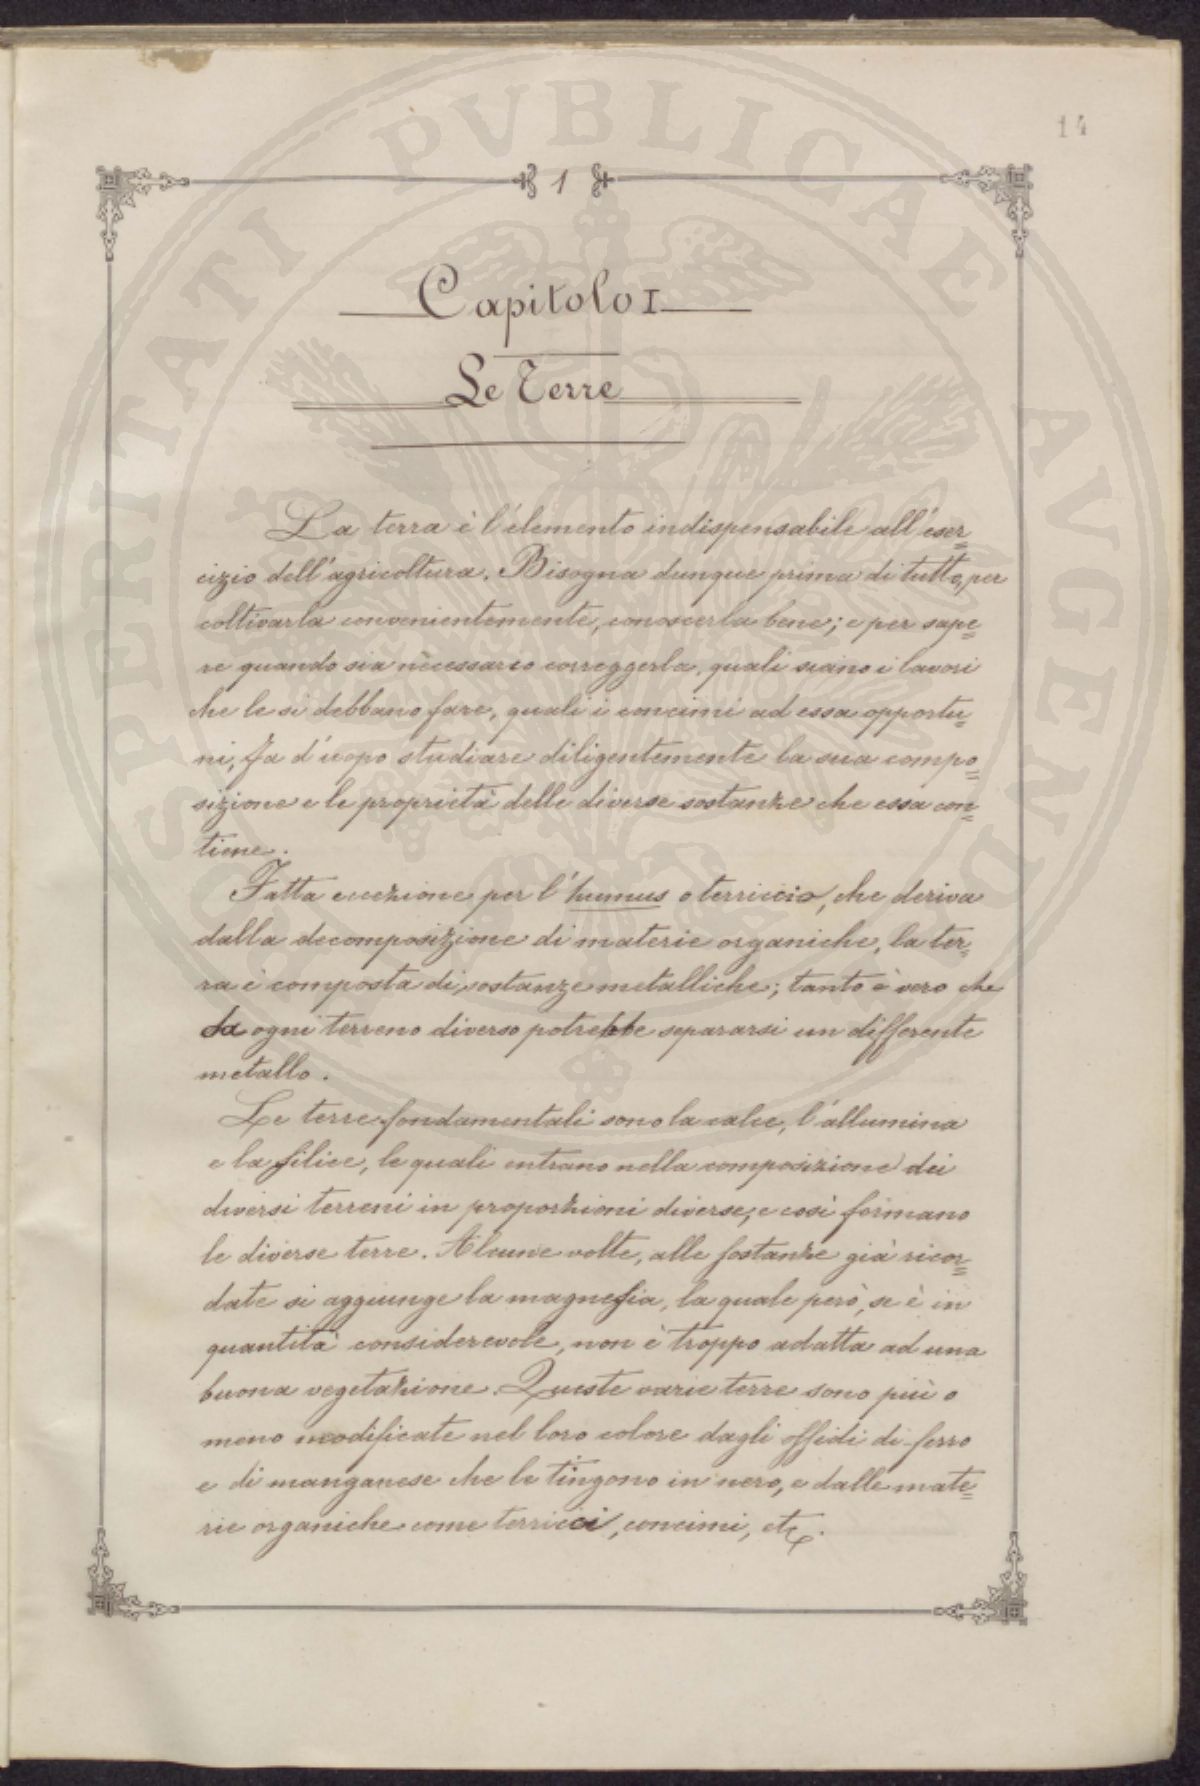 14
1
Capitolo I
Le Terre
La terra è l'elemento indispensabile all'eser=
cizio dell'agricoltura. Bisogna dunque prima di tutto, per
coltivarla convenientemente, conoscerla bene; e per sape=
re quando sia necessario correggerla, quali siano i lavori
che le si debbano fare, quali i concimi ad essa opportu=
ni, fa d'uopo studiare diligentemente la sua compo=
sizione e le proprietà delle diverse sostanze che essa con=
tiene.
Fatta eccezione per l'humus o terriccio, che deriva
dalla decomposizione di materie organiche, la ter=
ra è composta di sostanze metalliche; tanto è vero che
da ogni terreno diverso potrebbe separarsi un differente
metallo.
Le terre fondamentali sono la calce, l'allumina
e la silice, le quali entrano nella composizione dei
diversi terreni in proporzioni diverse, e così formano
le diverse terre. Alcune volte, alle sostanze già ricor=
date si aggiunge la magnesia, la quale però, se è in
quantità considerevole, non è troppo adatta ad una
buona vegetazione. Queste varie terre sono più o
meno modificate nel loro colore dagli ossidi di ferro
e di manganese che le tingono in nero, e dalle mate=
rie organiche come terricci, concimi, etc.
PROSPERITATI PVBLICAE AVGENDAE